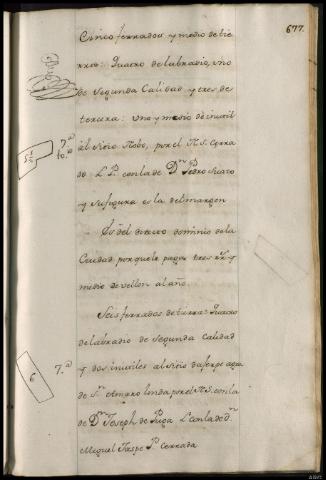 677.
Cinco ferrados y medio de tie
rra: Quatro de labradio, uno
de segunda Calidad y tres de
tercera: uno y medio de inutil
al sitio por el N. S. Cerra
do L. P. con la de D.n Pedro
y su figura es la del margen
5 1/2
7.a
Es del directo dominio de la
Ciudad porque le paga tres r.s y
medio de vellon al año.
Seis ferrados de tierra: Quatro
de labradio de segunda Calidad
y dos inutiles al sitio
de S.n Amaro linda por el N. S. con la
de D.n Joseph de Puga L. con la de d.n
Miguel P. cerrada
6
7.a